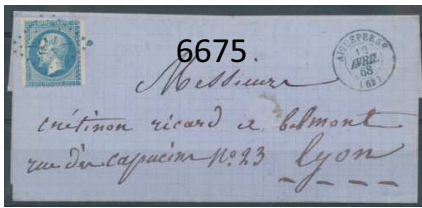 6675
AIGUEPERSE
12
AVRIL
68
(62)
Messieurs
crétinon ricard & belmont
rue des capucins No. 23 Lyon